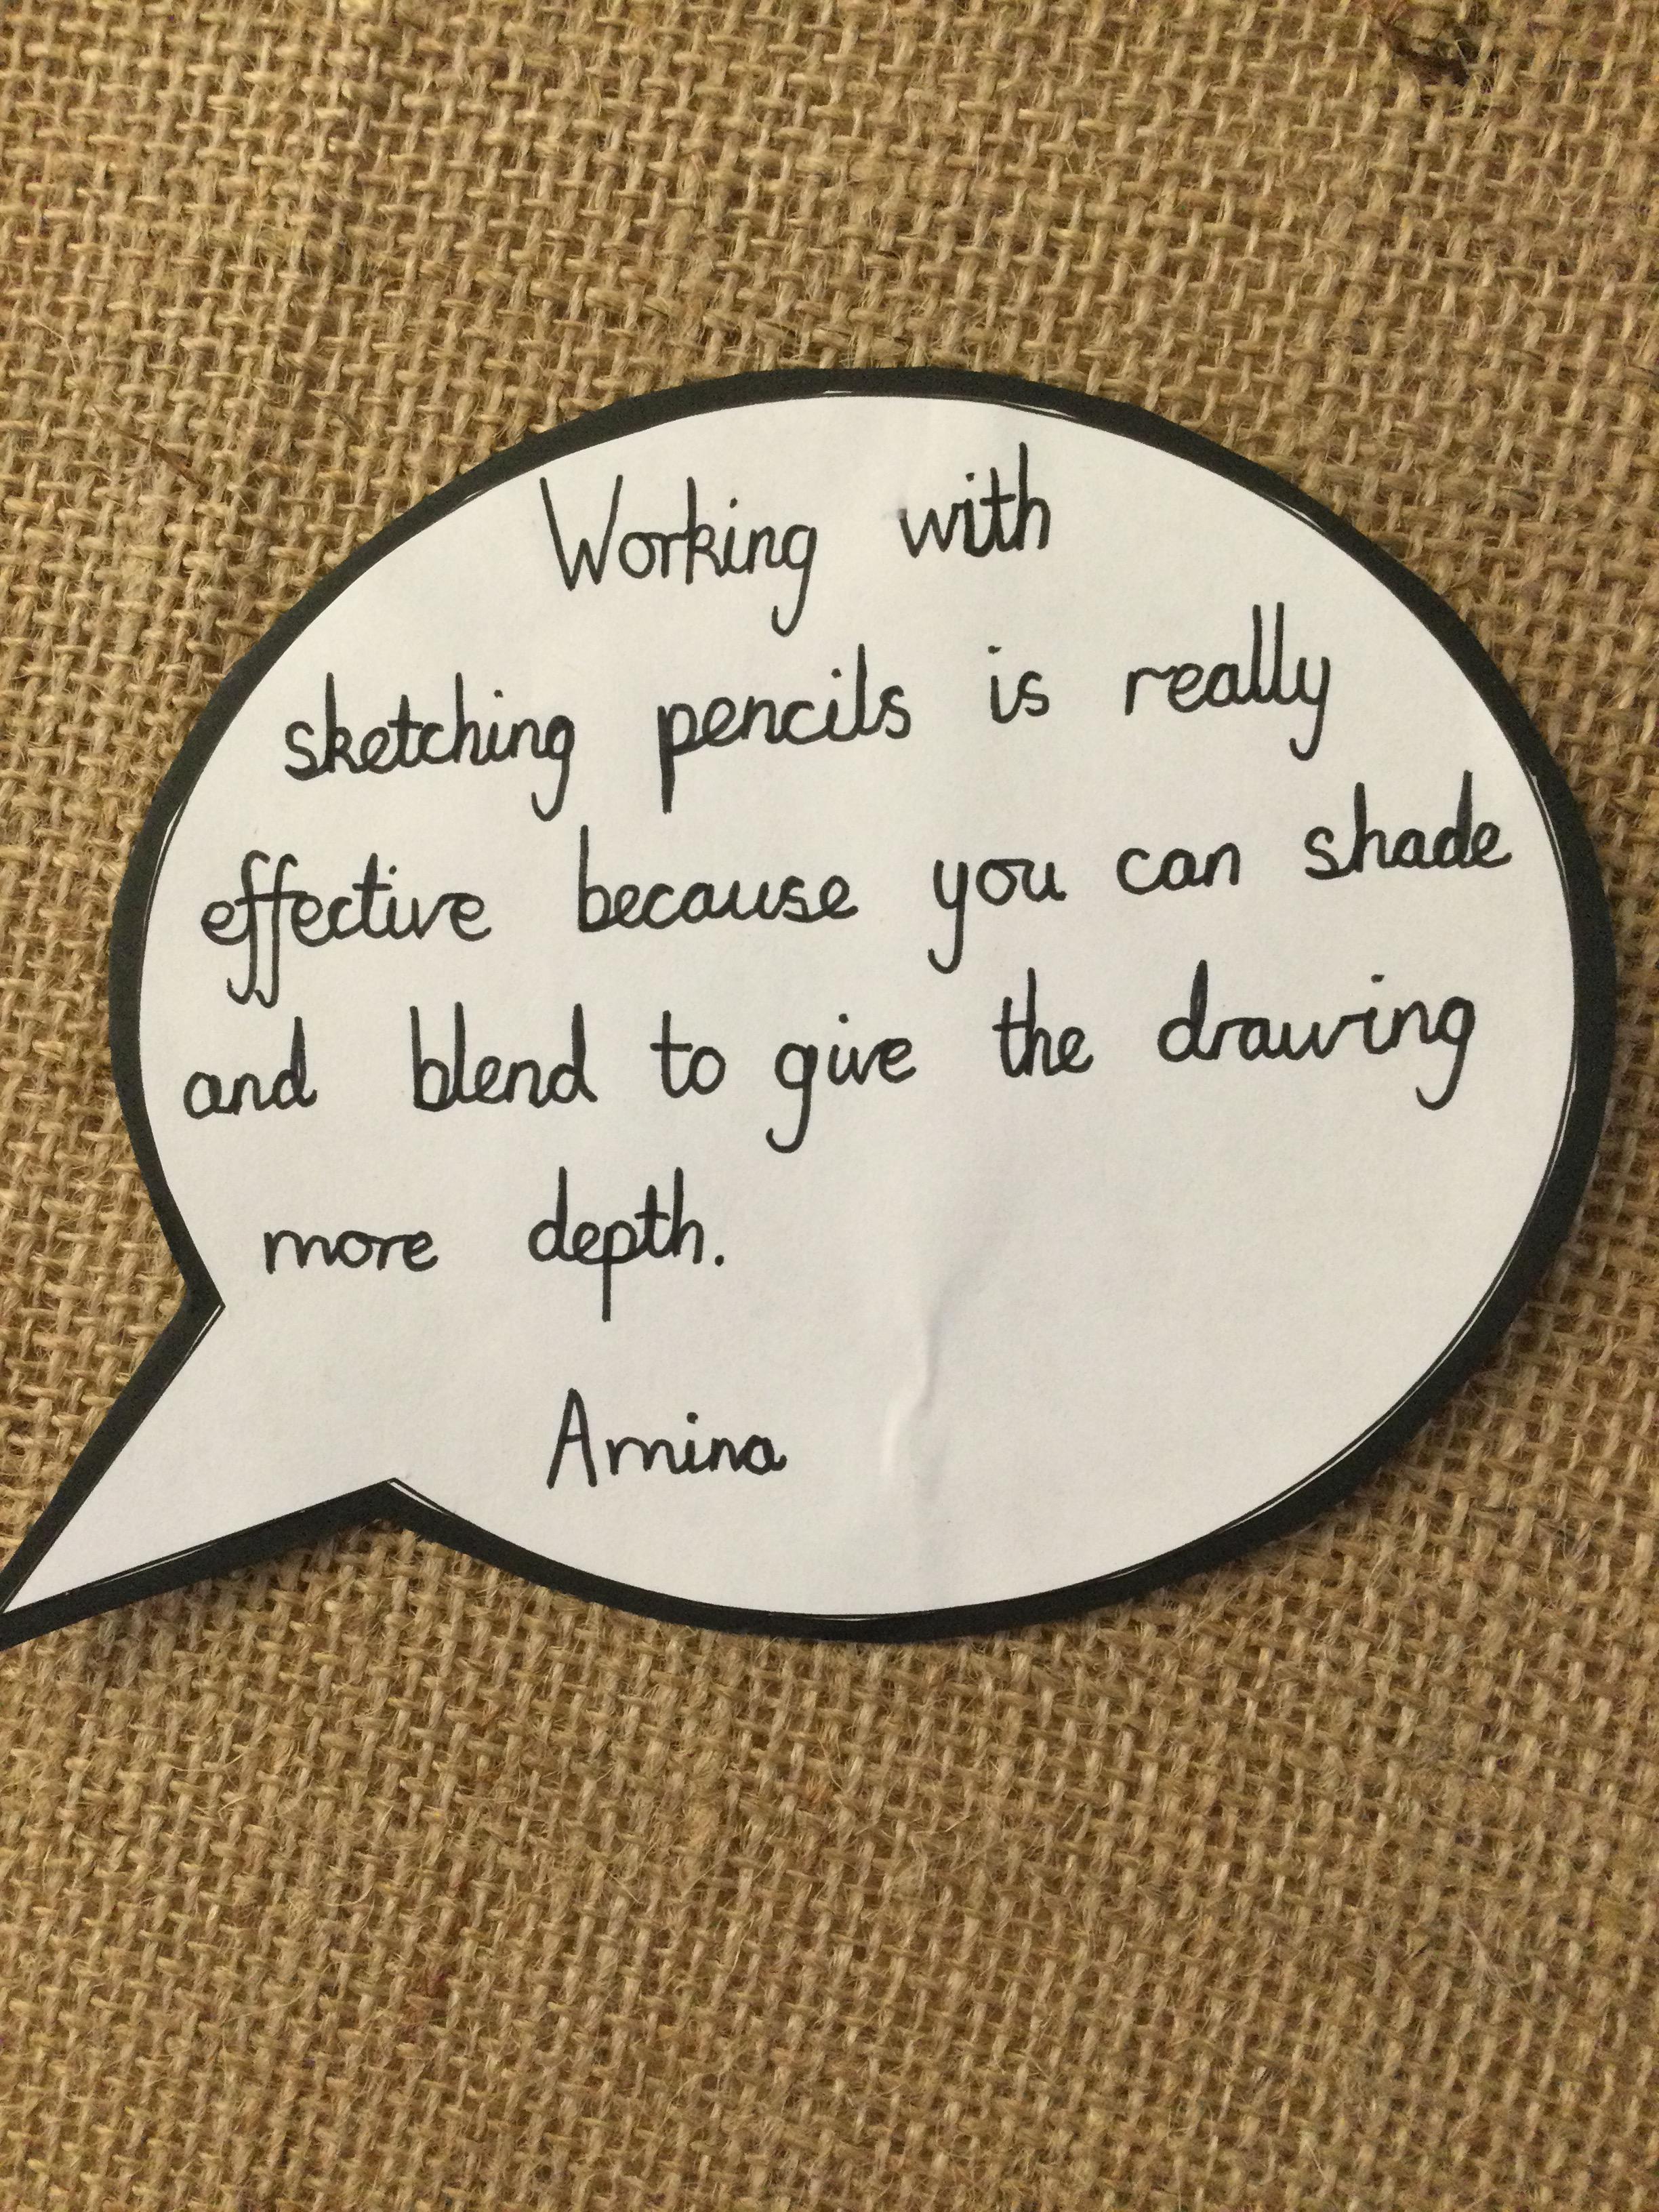 Working with
sketching pencils is really
effective because you can shade
and blend to give the drawing
more depth.
Amina